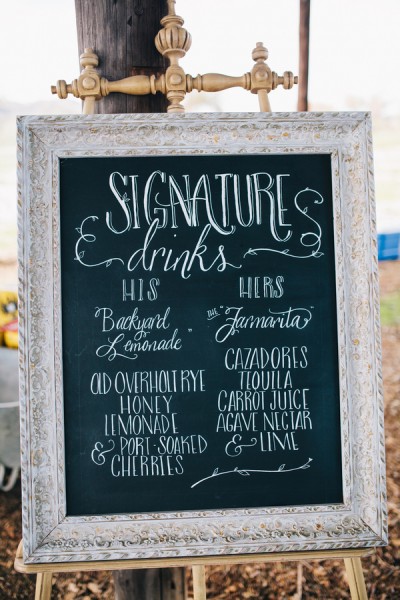 SIGNATURE
drinks
HIS
"Backyard
Lemonade"
OLD OVERHOLT RYE
HONEY
LEMONADE
& PORT-SOAKED
CHERRIES
HERS
THE "Jarmarita"
CAZADORES
TEQUILA
CARROT JUICE
AGAVE NECTAR
& LIME